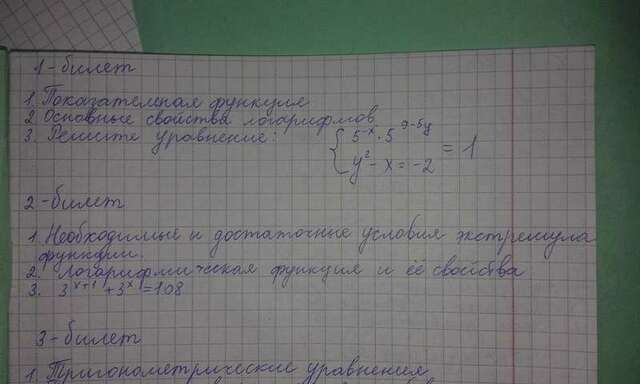 1-билет
1 Показательная функция
2 Основные свойства логарифмов
3 Решите уравнение: { 5ˣ · 5⁹⁻⁵ʸ = 1
y² - x = -2
2-билет
1 Необходимые и достаточные условия экстремума
функции.
2. Логарифмическая функция и её свойства
3. 3ˣ⁺¹ + 3ˣ = 108
3-билет
1. Тригонометрические уравнения